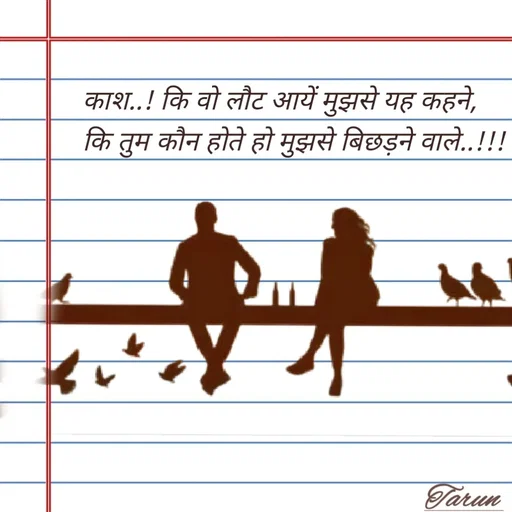 काश..! कि वो लौट आयें मुझसे यह कहने,
कि तुम कौन होते हो मुझसे बिछड़ने वाले..!!!
Tarun